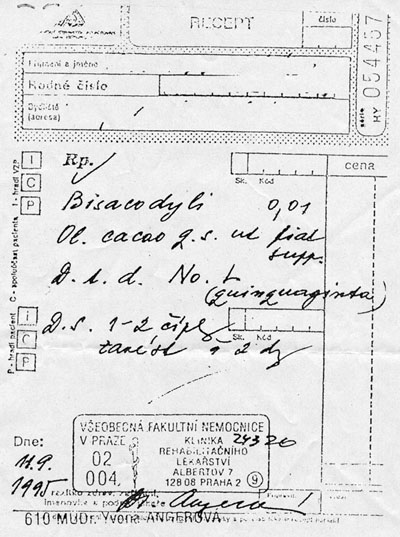 RECEPT
číslo
Příjmení a jméno
Rodné číslo
Bydliště
(adresa)
série
HY 054457
I - hradí VZP
C - spoluúčast pacienta
P - hradí pacient
I
C
P
Rp.
Sk. Kód
cena
Bisacodyli 0,01
Ol. cacao q.s. ut fiat
supp.
D. t. d. No. L
(quinquaginta)
I
C
P
D.S. 1-2 čípky
Sk. Kód
zavést à 2 dny
VŠEOBECNÁ FAKULTNÍ NEMOCNICE
V PRAZE
02
004
KLINIKA
REHABILITAČNÍHO
LÉKAŘSTVÍ
ALBERTOV 7
128 08 PRAHA 2
9
Dne:
11.9.
1995
610 MUDr. Yvona ANGEROVÁ